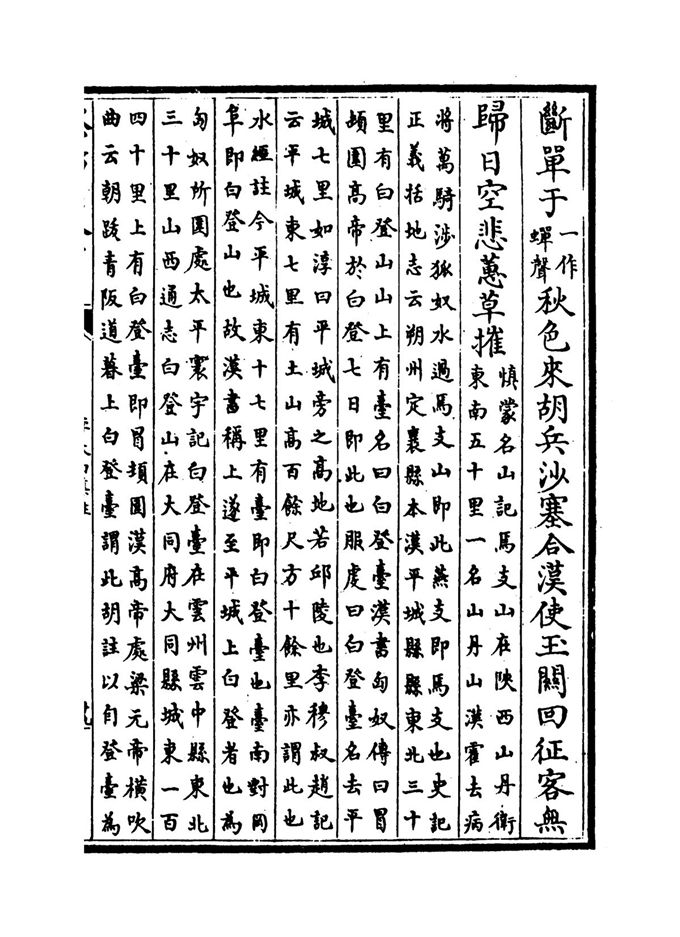 斷單于一作蟬聲秋色來胡兵沙塞合漢使玉關回征客無
歸日空悲蕙草摧慎蒙名山記馬支山在陜西山丹衛
東南五十里一名山丹山漢霍去病
將萬騎涉狐奴水過馬支山即此燕支即馬支也史記
正義括地志云朔州定襄縣本漢平城縣縣東北三十
里有白登山山上有臺名曰白登臺漢書匈奴傳曰冒
頓圍高帝於白登七日即此也服虔曰白登臺名去平
城七里如淳曰平城旁之高地若邱陵也李穆叔趙記
云平城東七里有土山高百餘尺方十餘里亦謂此也
水經註今平城東十七里有臺即白登臺也臺南對岡
阜即白登山也故漢書稱上遂至平城上白登者也為
匈奴所圍處太平寰宇記白登臺在雲州雲中縣東北
三十里山西通志白登山在大同府大同縣城東一百
四十里上有白登臺即冒頓圍漢高帝處梁元帝橫吹
曲云朝跋青阪道暮上白登臺謂此胡註以自登臺為